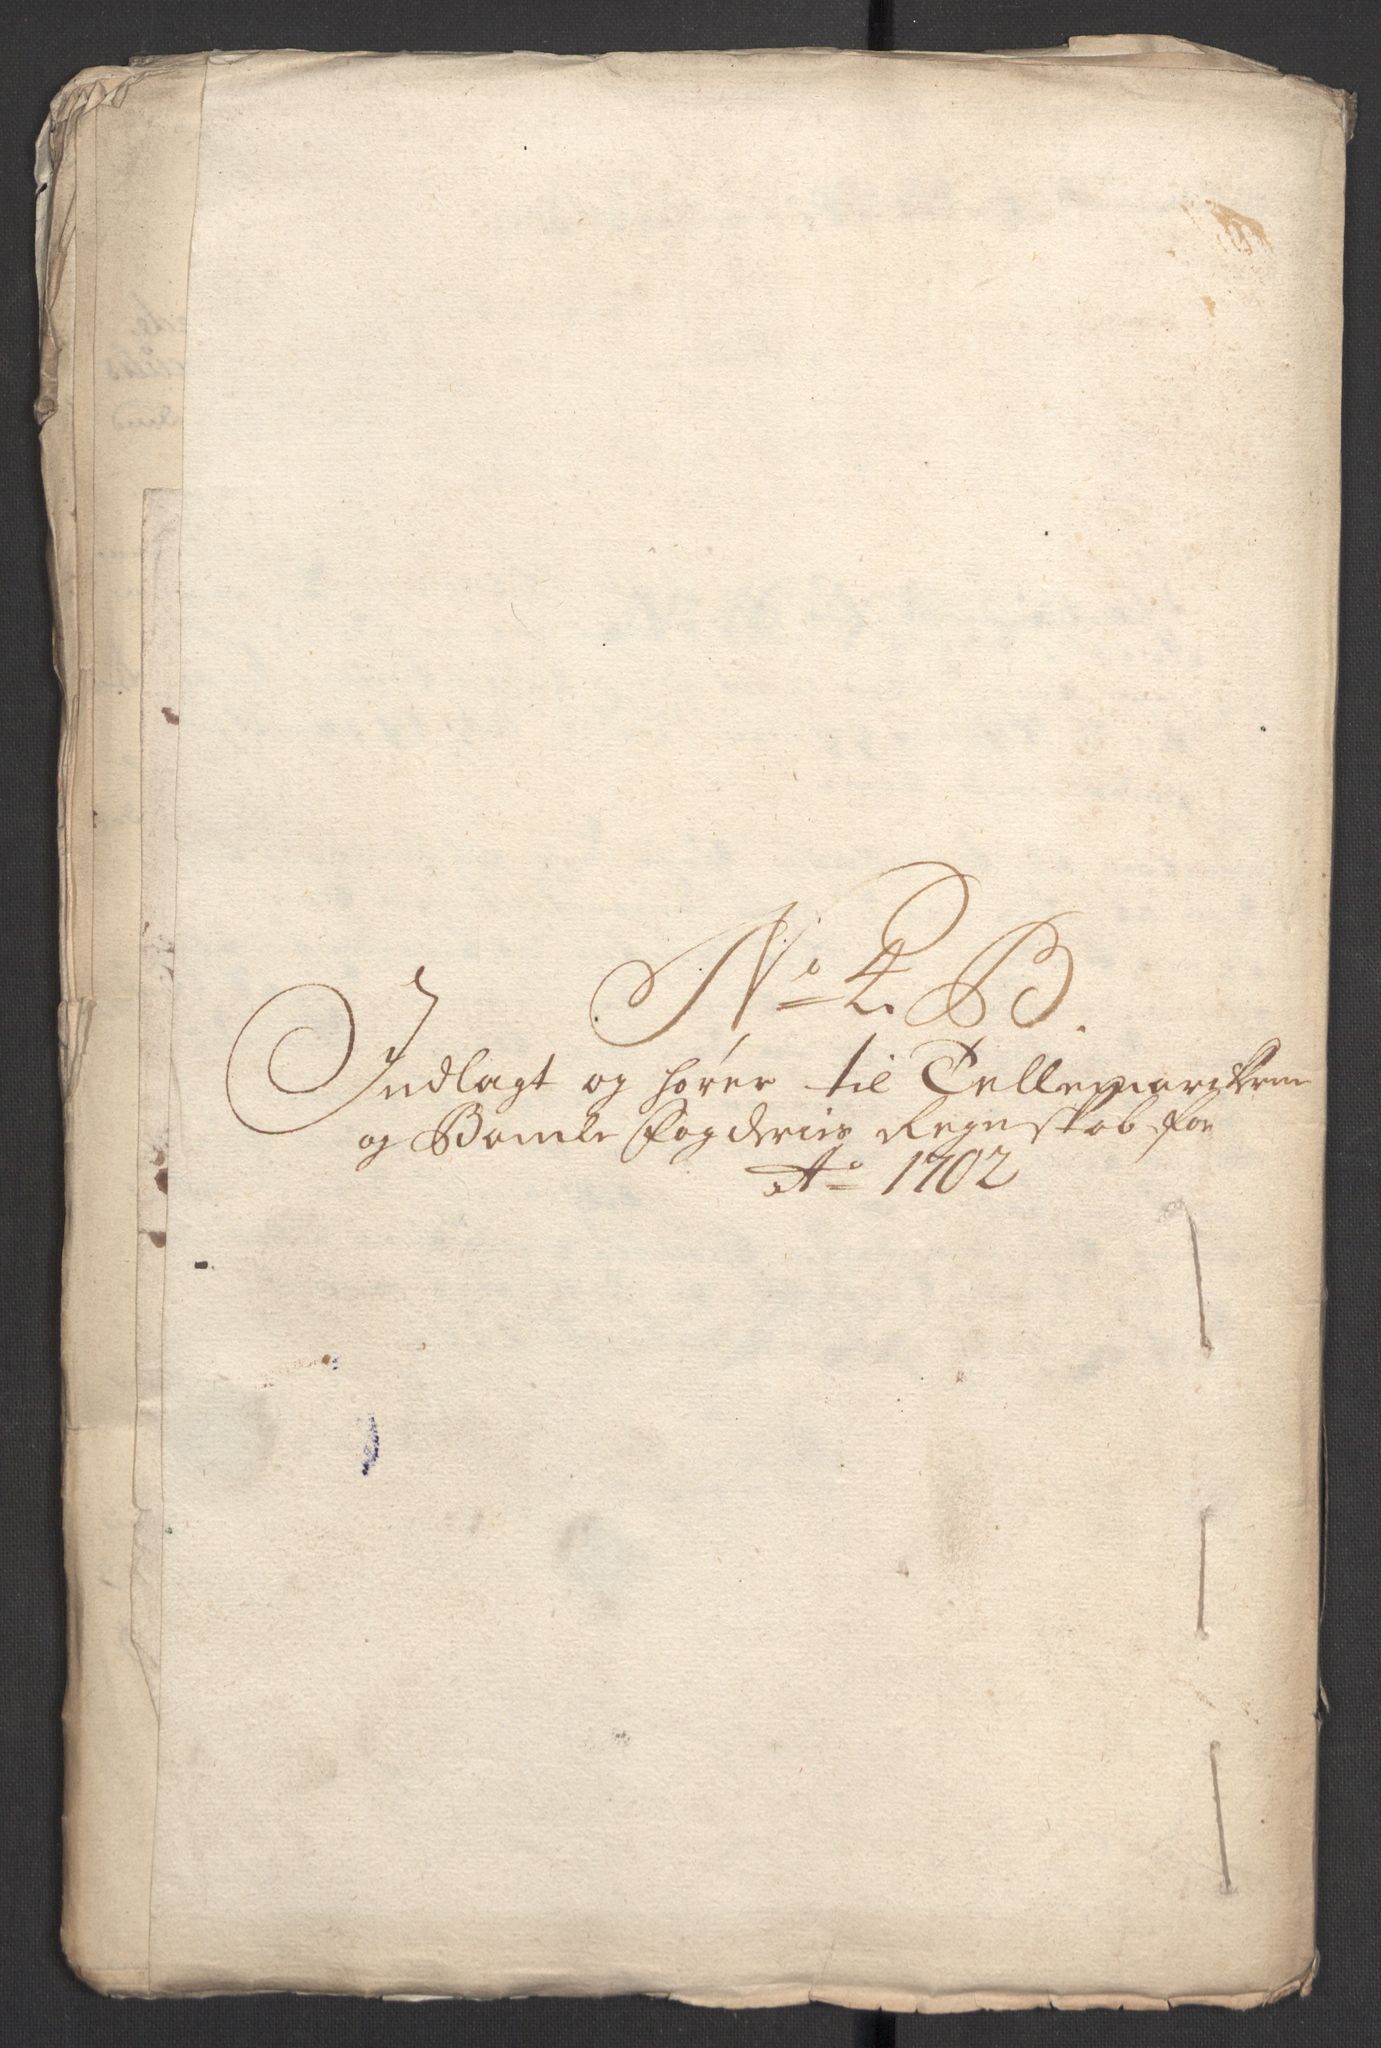 No 4. B.
Indlagt og hører til Tellemarckens
og Bamble Fogderiis Regnskab for
Ao 1702